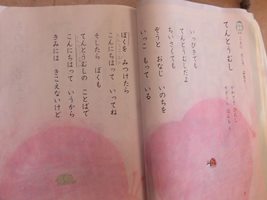 てんとうむし
いっぴきでも
てんとうむしだよ
ちいさくても
ぞうと おなじ いのちを
いっこ もって いる
ぼくを みつけたら
こんにちはって いってね
そしたら ぼくも
てんとうむしの ことばで
こんにちはって いうから
きみには きこえないけど